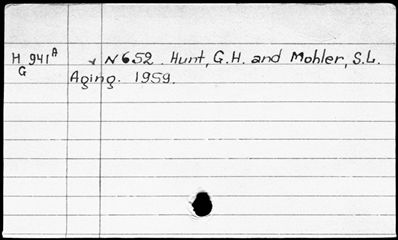 H 941A √ N652. Hunt, G.H. and Mohler, S.L.
G Aging. 1959.